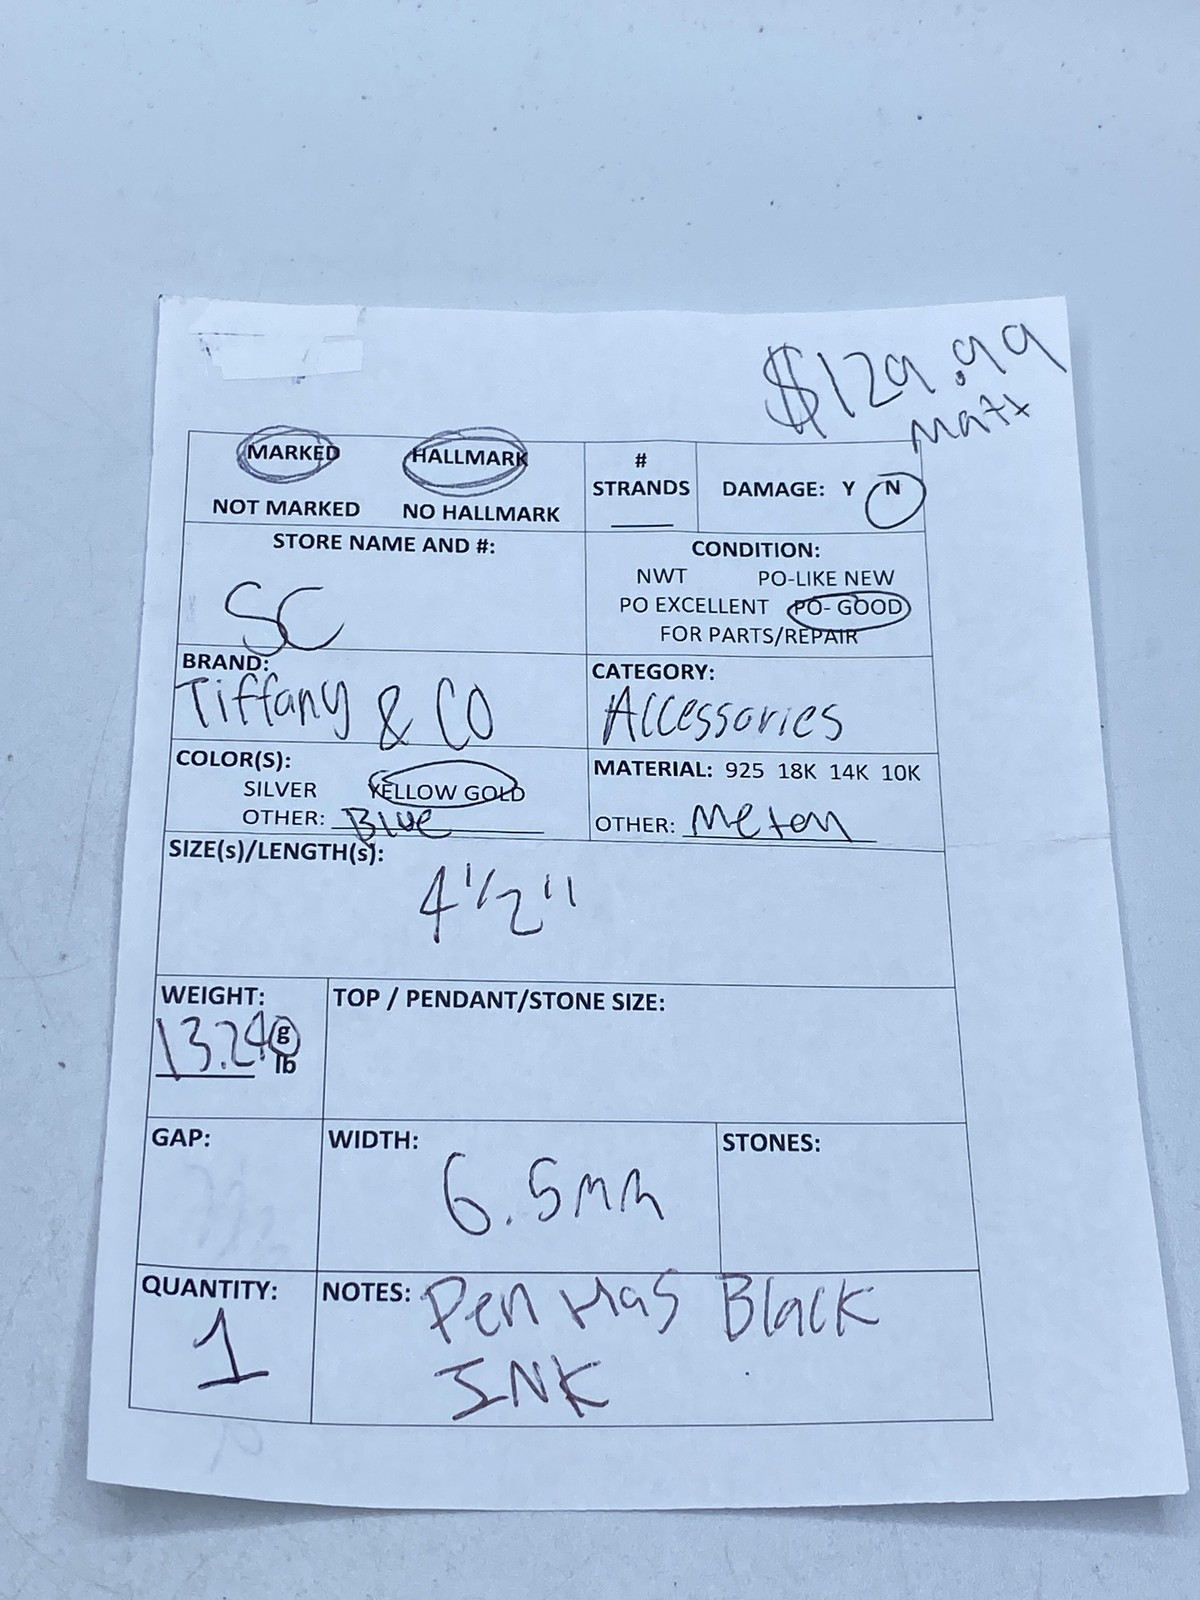 $129.99
MARKED HALLMARK
NOT MARKED NO HALLMARK
#
STRANDS
DAMAGE: Y N
STORE NAME AND #:
SC
CONDITION:
NWT PO-LIKE NEW
PO EXCELLENT PO- GOOD
FOR PARTS/REPAIR
BRAND:
Tiffany & CO
CATEGORY:
Accessories
COLOR(S):
SILVER YELLOW GOLD
OTHER: Blue
MATERIAL: 925 18K 14K 10K
OTHER:
SIZE(s)/LENGTH(s):
4 1/2"
WEIGHT:
13.24 g
lb
TOP / PENDANT/STONE SIZE:
GAP:
WIDTH:
6.5mm
STONES:
QUANTITY:
1
NOTES: Pen Has Black
INK